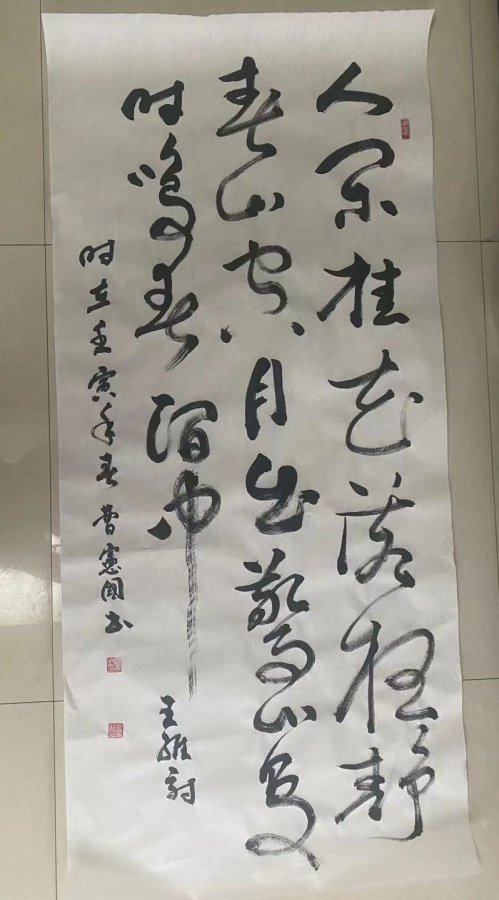 人闲桂花落夜静
春山空月出驚山鸟
时鸣春澗中
王維詩
时在壬寅年春曾憲國书